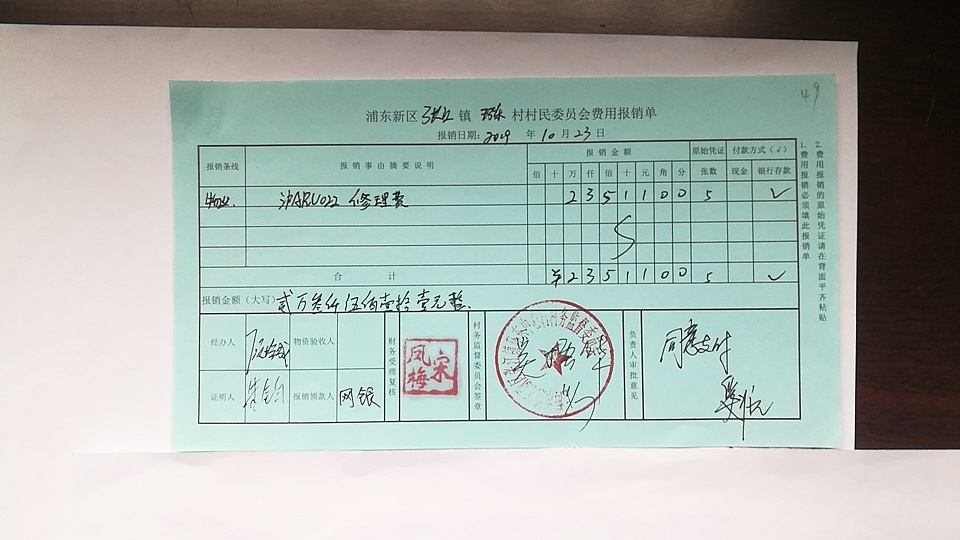 49
浦东新区 张江 镇 环东 村村民委员会费用报销单
报销日期: 2019 年 10 月 23 日
报销条线 报销事由摘要说明 报销金额 原始凭证 付款方式(√)
佰 十 万 仟 佰 十 元 角 分 张数 现金 银行存款
物业. 沪ARU022 修理费 2 3 5 1 1 0 0 5 √
合 计 ¥ 2 3 5 1 1 0 0 5 √
报销金额(大写) 贰万叁仟伍佰壹拾壹元整.
经办人 物资验收人
证明人 报销领款人 网银
财务受理复核
宋凤梅
村务监督委员会签章
负责人审批意见
同意支付
1.费用报销必须填此报销单
2.费用报销的原始凭证请在背面平齐粘贴